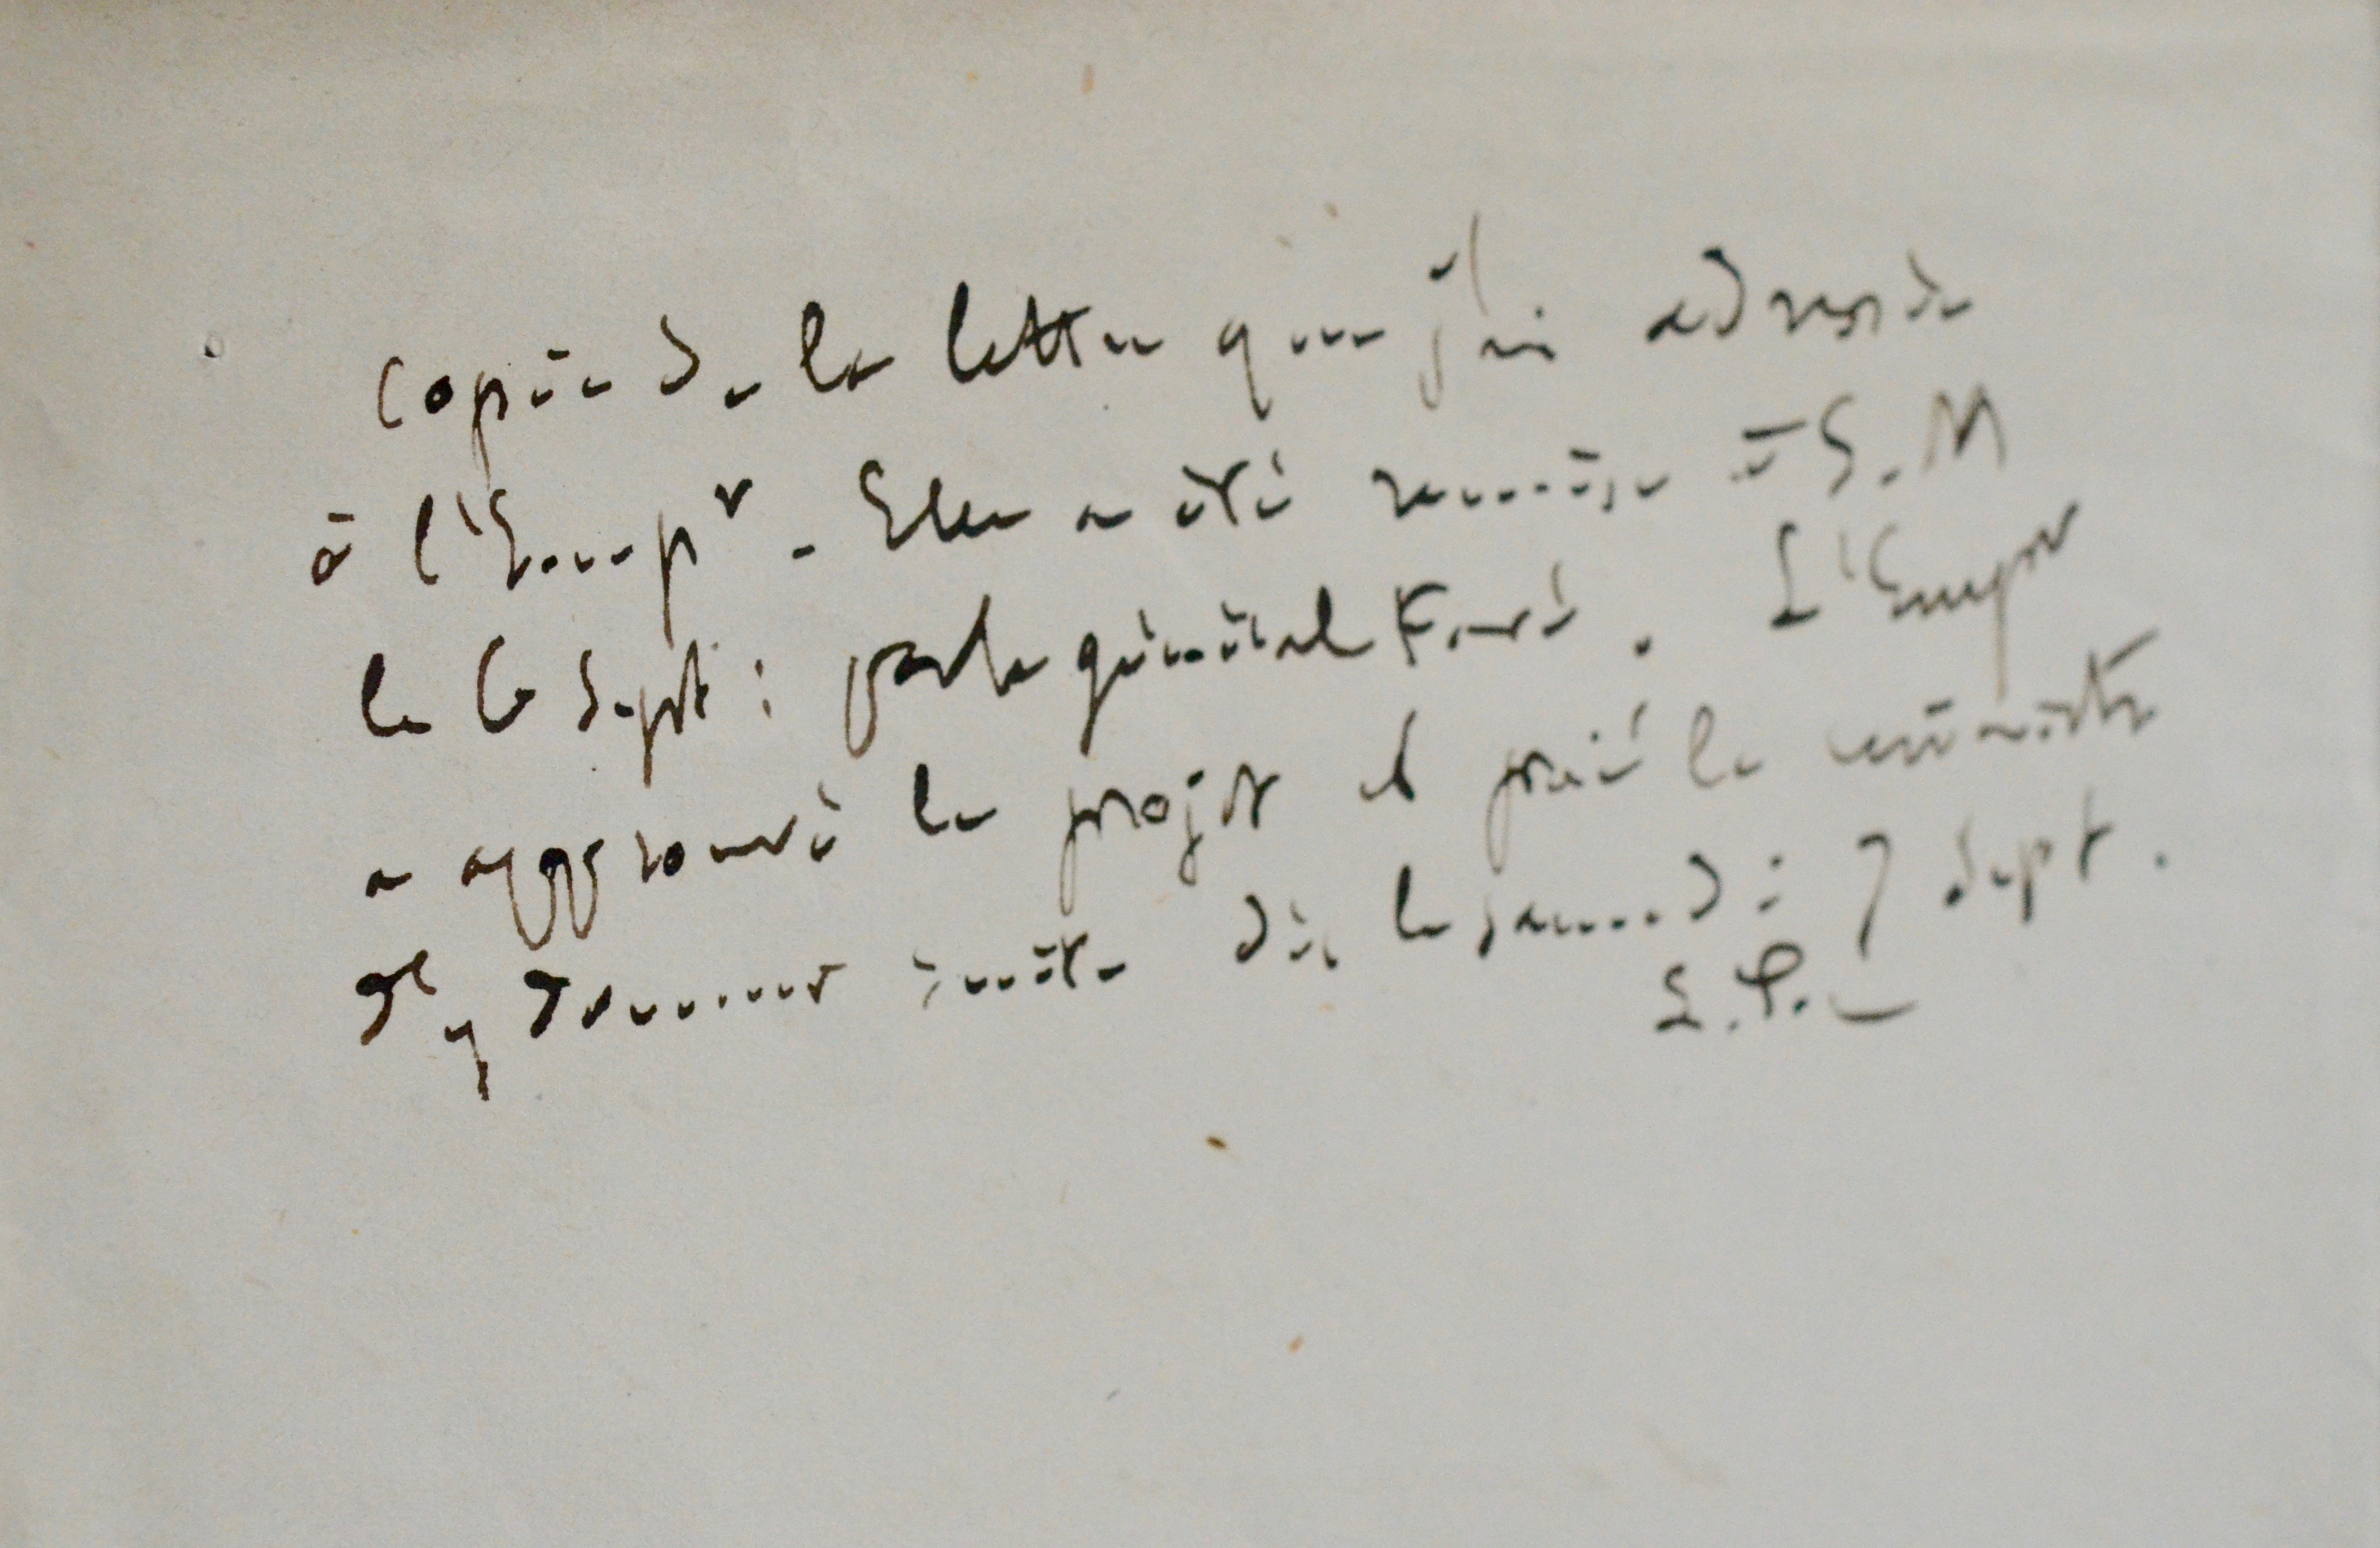 Copie de la lettre que j'ai adressée
à l'Empr. Elle a été remise à S. M
le 6 Sept: par le général Favé. L'Emper
a approuvé le projet et prié le ministre
d'y donner suite dès le samedi 7 Sept.
L. P.